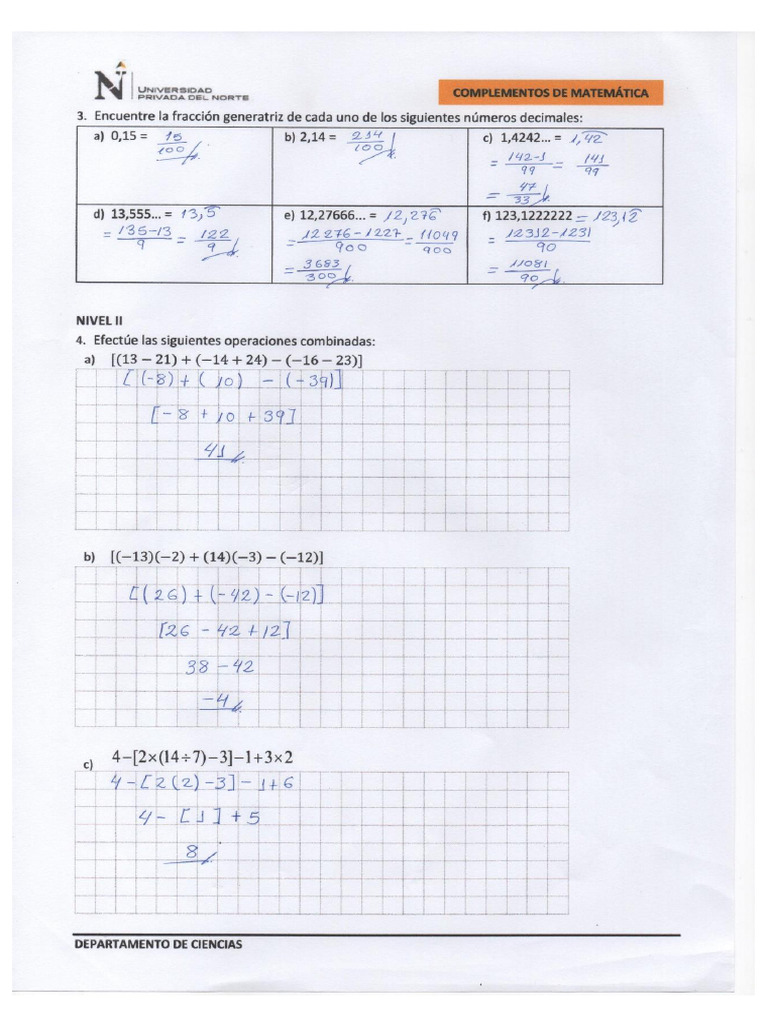 N UNIVERSIDAD
PRIVADA DEL NORTE
COMPLEMENTOS DE MATEMÁTICA
3. Encuentre la fracción generatriz de cada uno de los siguientes números decimales:
a) 0,15 = 15/100
b) 2,14 = 214/100
c) 1,4242... = 1,42
= 142-1/99 = 141/99
= 47/33
d) 13,555... = 13,5
= 135-13/9 = 122/9
e) 12,27666... = 12,276
= 12276-1227/900 = 11049/900
= 3683/300
f) 123,1222222 = 123,12
= 12312-1231/90
= 11081/90
NIVEL II
4. Efectúe las siguientes operaciones combinadas:
a) [(13 − 21) + (−14 + 24) − (−16 − 23)]
[(-8) + ( 10) - (-39)]
[-8 + 10 + 39]
41
b) [(−13)(−2) + (14)(−3) − (−12)]
[(26) + (-42) - (-12)]
[26 - 42 + 12]
38 - 42
-4
c) 4−[2×(14÷7)−3]−1+3×2
4-[2(2)-3]-1+6
4- [1] + 5
8
DEPARTAMENTO DE CIENCIAS